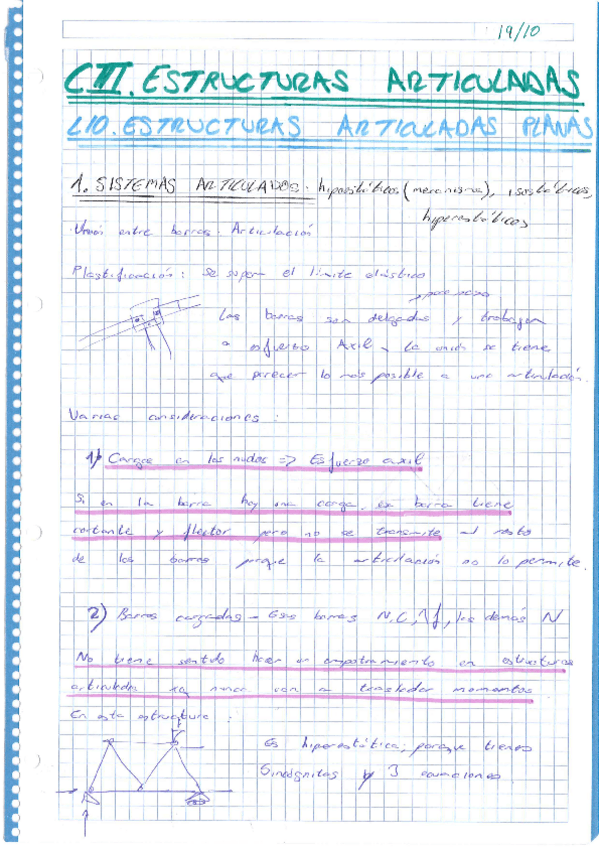 19/10
CIII. ESTRUCTURAS ARTICULADAS
L10. ESTRUCTURAS ARTICULADAS PLANAS
1. SISTEMAS ARTICULADOS: hipostáticos (mecanismo), isostáticos,
hiperestáticos
Unión entre barras: Articulación
Plastificación: se supera el límite elástico
Las barras son delgadas y trabajan
a esfuerzo Axil, la unión se tiene
que parecer lo más posible a una articulación.
Varias consideraciones:
1) Cargas en los nudos => Esfuerzo axil
Si en la barra hay una carga, esa barra tiene
cortante y flector pero no se transmite al resto
de las barras porque la articulación no lo permite.
2) Barras cargadas - Esas barras N, C, , las demás N
No tiene sentido hacer un empotramiento en estructuras
articuladas, ya nunca van a trasladar momentos
En esta estructura:
Es hiperestática, porque tienes
5 incógnitas y 3 ecuaciones